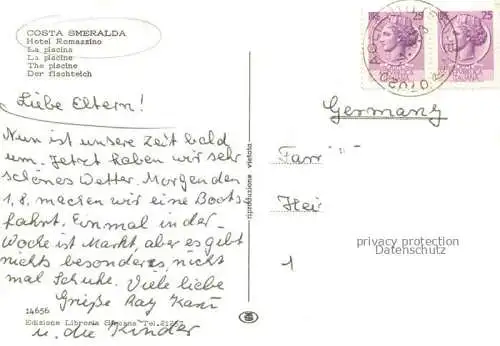 COSTA SMERALDA
Hotel Romazzino
La piscina
La piscine
The piscine
Der fischteich
Liebe Eltern!
Nun ist unsere Zeit bald
um. Jetzt haben wir sehr
schönes Wetter. Morgen den
1,8. machen wir eine Boots
fahrt. Einmal in der
Woche ist Markt, aber es gibt
nichts besonderes, nicht
mal Schuhe. Viele liebe
Grüße Ray
u. die Kinder
14656
Edizione Libreria Tel.
riproduzione vietata
25
25
Germany
privacy protection
Datenschutz
1